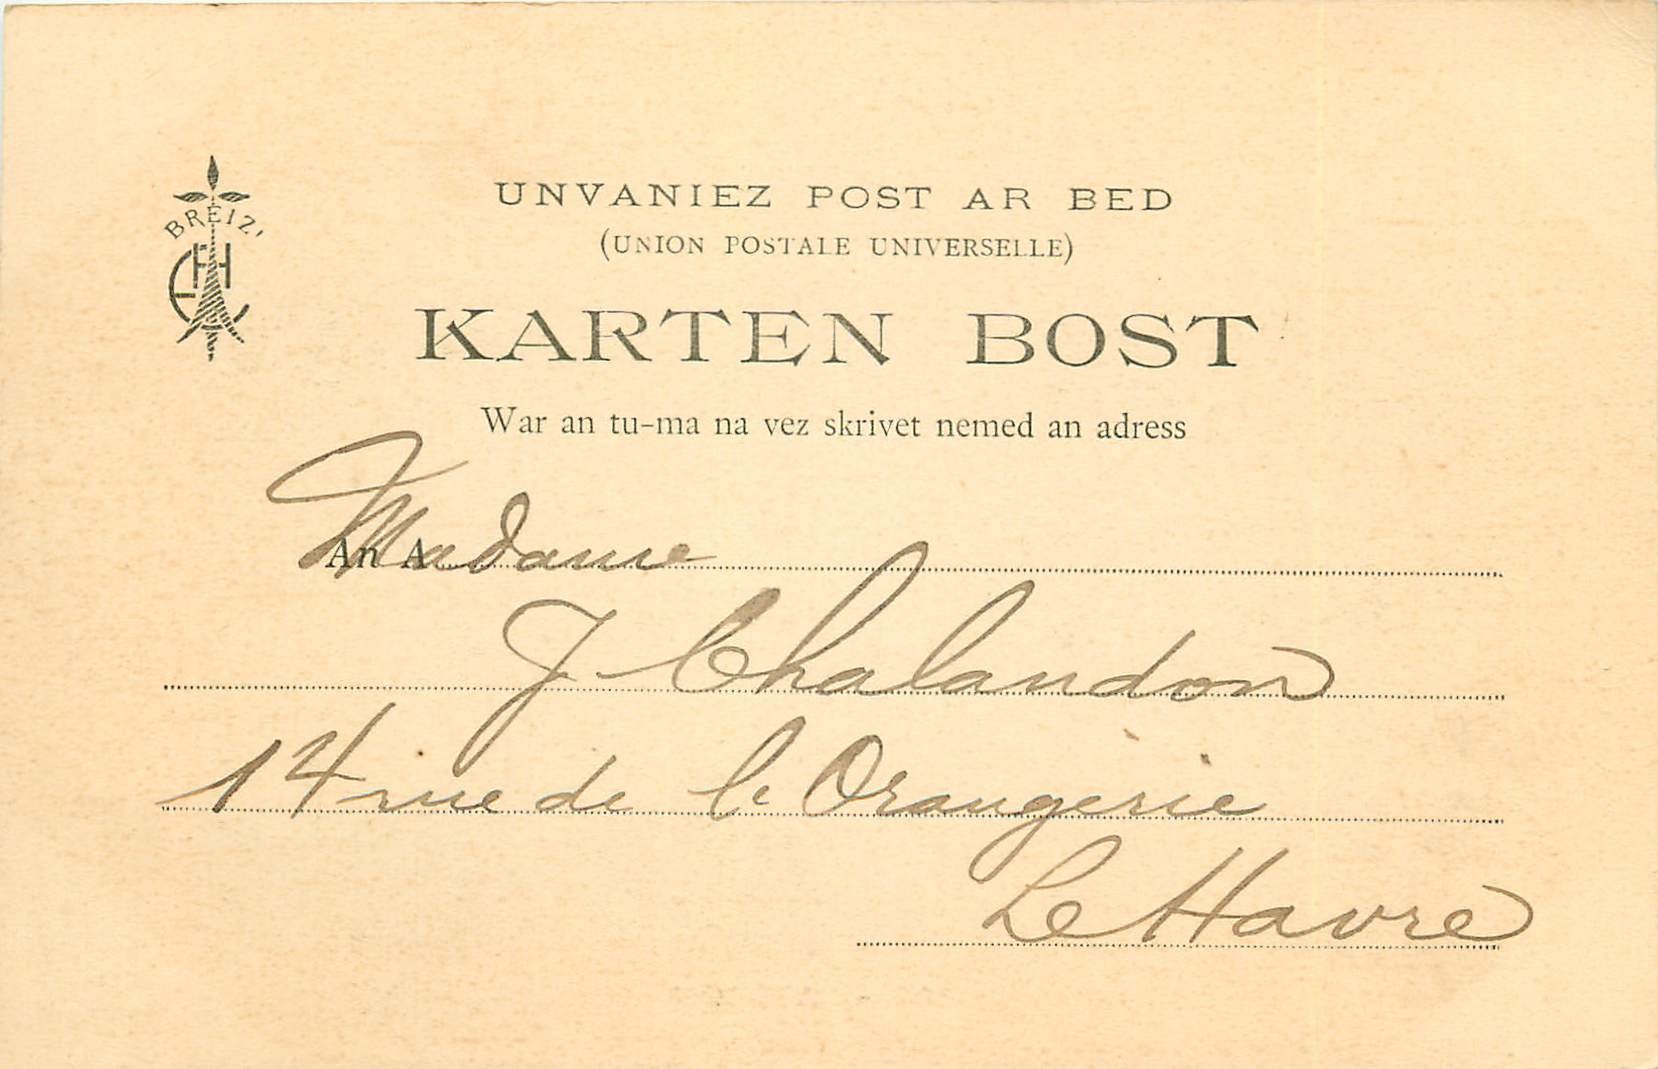 BREIZ
UNVANIEZ POST AR BED
(UNION POSTALE UNIVERSELLE)
KARTEN BOST
War an tu-ma na vez skrivet nemed an adress
An A
Madame
J Chalandon
14 rue de l'Orangerie
Le Havre